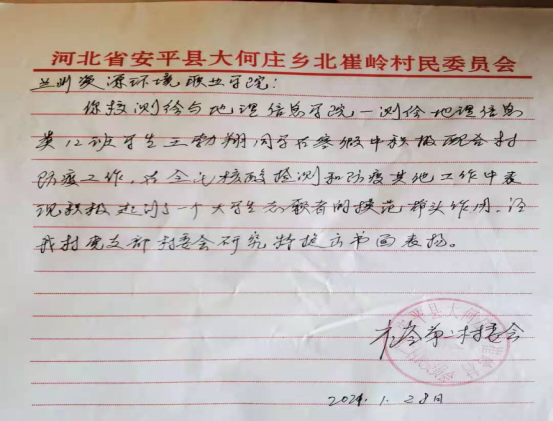 河北省安平县大何庄乡北崔岭村民委员会
兰州资源环境职业学院：
你校测绘与地理信息学院一测绘地理信息
类12班学生王勃翔同学在寒假中积极配合村
防疫工作，在全民核酸检测和防疫其他工作中表
现积极起到了一个大学生志愿者的模范带头作用，经
我村党支部村委会研究特提出书面表扬。
村委会
2021.1.28日